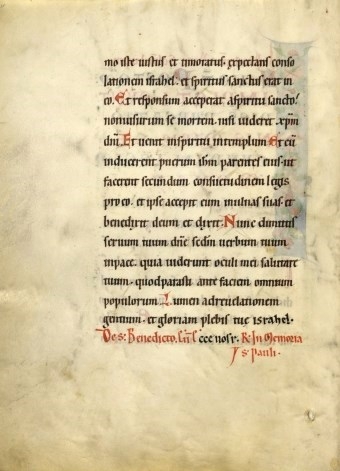 mo iste iustus et timoratus. expectans conso
lationem israhel. et spiritus sanctus erat in
eo. Et responsum acceperat a spiritu sancto.
non uisurum se mortem. nisi uideret xp̄m
dn̄i. Et uenit in spiritu in templum. Et cū
inducerent puerum ihm̄ parentes eius. ut
facerent secundum consuetudinem legis
pro eo. et ipse accepit eum in ulnas suas. et
benedixit deum et dixit. Nunc dimittis
seruum tuum dn̄e sedm̄ uerbum tuum
in pace. quia uiderunt oculi mei salutare
tuum. quod parasti ante faciem omnium
populorum. Lumen ad reuelationem
gentium. et gloriam plebis tue israhel.
De s. Benedicto. In Memoria
s. pauli.